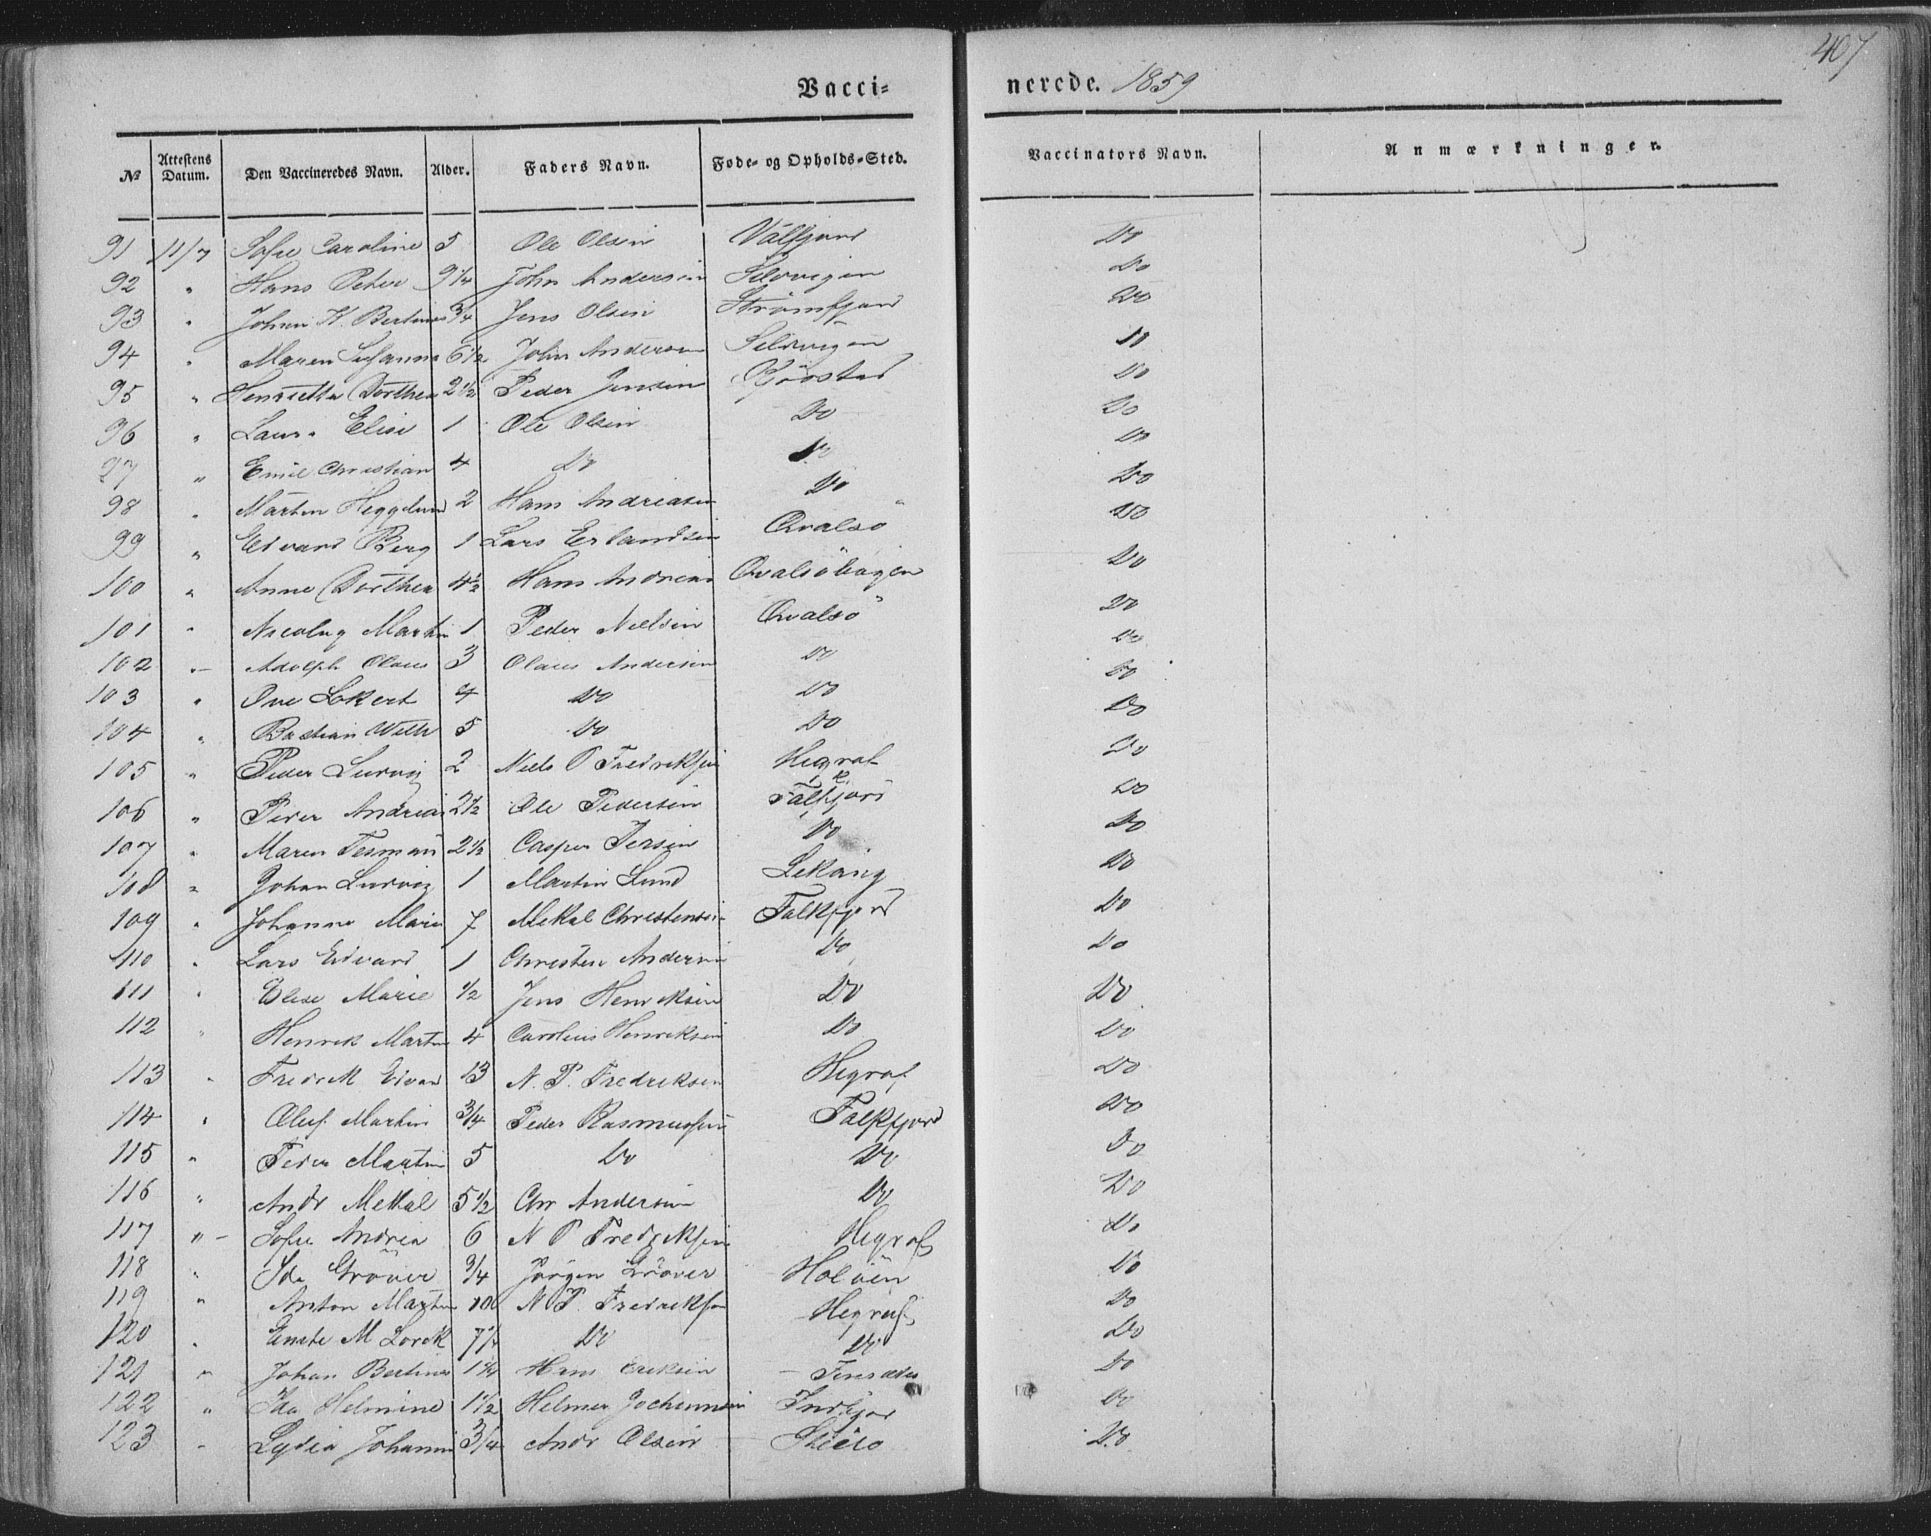 407
Vacci- nerede. 1859
№ Attestens Datum. Den Vaccineredes Navn. Alder. Faders Navn. Føde- og Opholds-Sted. Vaccinators Navn. Anmærkninger.
91 11/7 Sofie Caroline 5 Ole Olsen Do
92 " Hans Peter 9 1/4 John Andersen Selvvigen Do
93 " Johan K. Bertinus 3/4 Jens Olsen Strømfjord Do
94 " Maren Susanna 6 1/2 John Andersen Selvvigen Do
95 " Henriette Dorthea 2 1/2 Peder Jensen Do
96 " Laura Elise 1 Ole Olsen Do Do
97 " Emil Christian 4 Do Do Do
98 " Martin Heggelund 2 Hans Andreasen Do Do
99 " Edvard Berg 1 Lars Erlandsen Qvalsö Do
100 " Anne Dorthea 4 1/2 Hans Andreas Do
101 " Nicolay Martin 1 Peder Nielsen Qvalsö Do
102 " Adolph Olaus 3 Olaus Andersen Do Do
103 " Ove Lokert 4 Do Do Do
104 " Bastian Wilh 5 Do Do Do
105 " Peder Ludvig 2 Niels P Fredriksen Hegraf Do
106 " Peder Andreas 2 1/2 Ole Pedersen Falkfjord Do
107 " Maren 2 1/2 Casper Do Do
108 " Johan Ludvig 1 Martin Lund Lekang Do
109 " Johanna Marie 7 Mekal Christensen Falkfjord Do
110 " Lars Edvard 1 Christen Andersen Do Do
111 " Elise Marie 1/2 Jens Henriksen Do Do
112 " Henrik Martin 4 Carolius Henriksen Do Do
113 " Fredrik Edvard 13 N. P. Fredriksen Hegraf Do
114 " Oluf Martin 3/4 Peder Rasmussen Falkfjord Do
115 " Peder Martin 5 Do Do Do
116 " Andr Mekal 5 1/2 Chr Andersen Do Do
117 " Sofie Andrea 6 N P Fredriksen Hegraf Do
118 " Ida Gröver 3/4 Jørgen Gröver Holöen Do
119 " Anton Martin 10 N. P. Fredriksen Hegraf Do
120 " M Lorck Do Do Do
121 " Johan Bertinus Hans Eriksen Do
122 " Ida Helmine 1 1/2 Helmer Jochumsen Indfjord Do
123 " Lydia Johanne 3/4 Andr Olsen Do